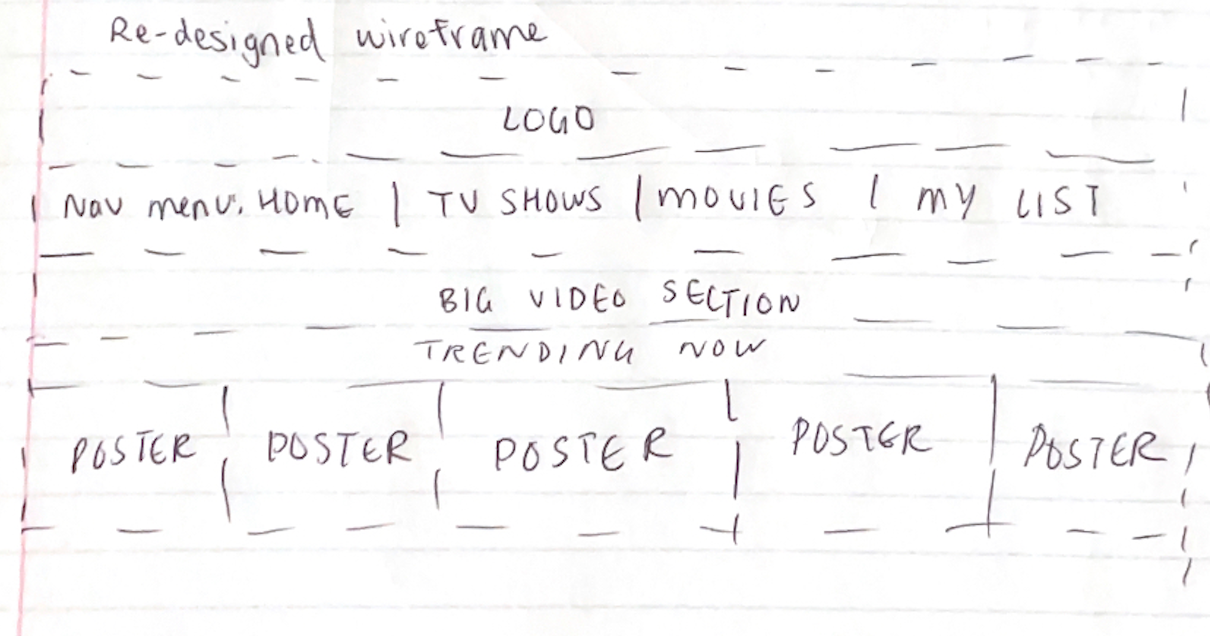 Re-designed wireframe
LOGO
Nav menu. HOME | TV SHOWS | MOVIES | MY LIST
BIG VIDEO SECTION
TRENDING NOW
POSTER POSTER POSTER POSTER POSTER